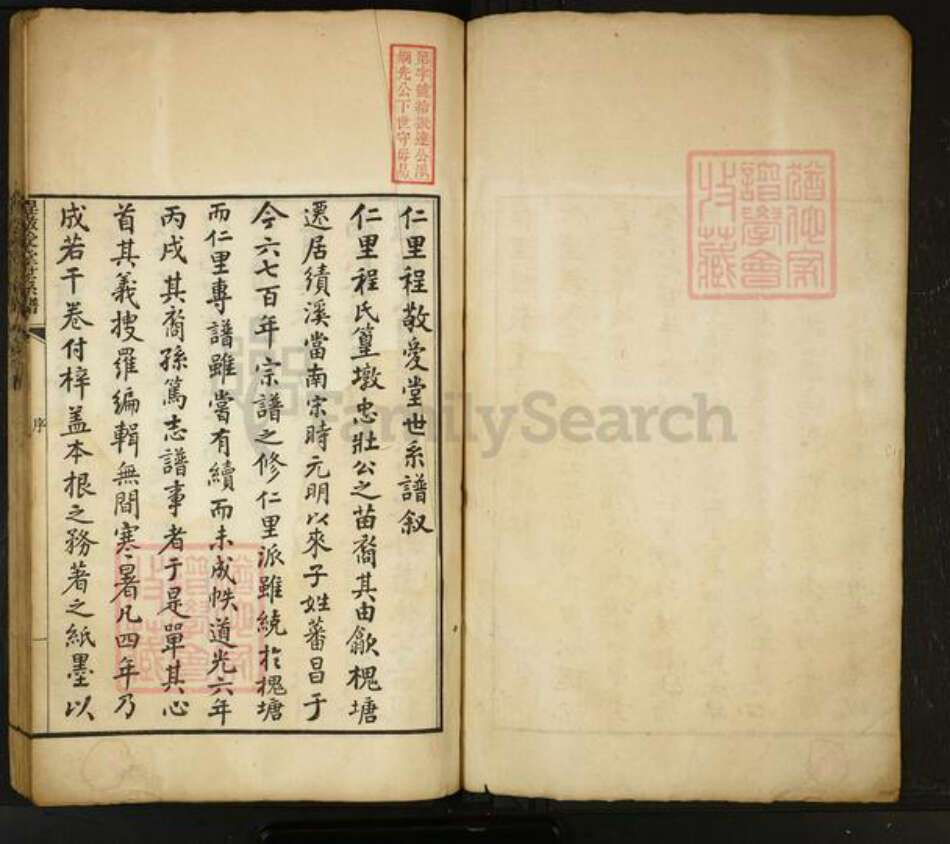 仁里程敬愛堂世系譜叙
仁里程氏篁墩忠壯公之苗裔其由歙槐塘
遷居績溪當南宋時元明以來子姓蕃昌于
今六七百年宗譜之修仁里派雖統於槐塘
而仁里專譜雖嘗有續而未成帙道光六年
丙戌其裔孫篤志譜事者于是單其心
首其義搜羅編輯無間寒暑凡四年乃
成若干卷付梓蓋本根之務著之紙墨以
序
譜學會
收藏
FamilySearch